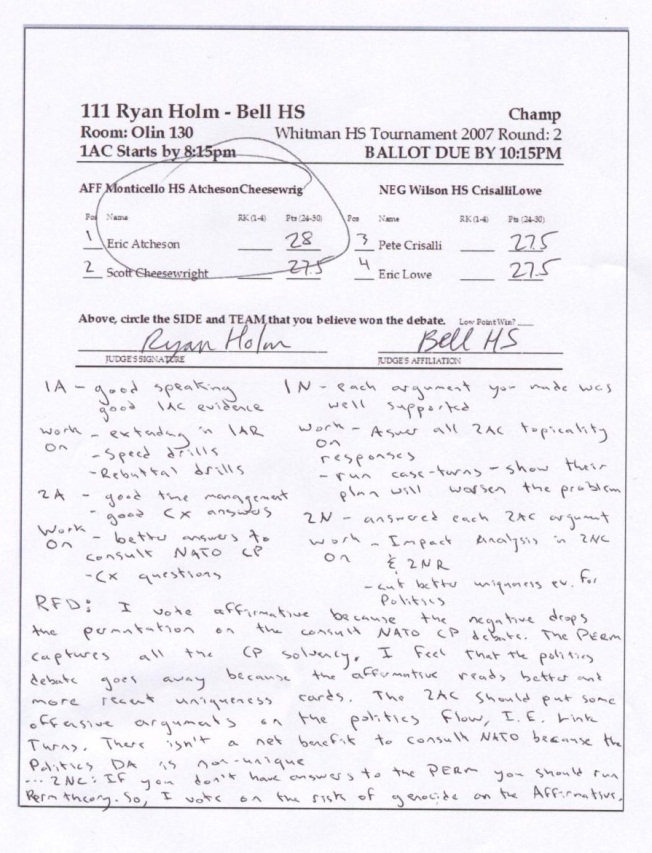 111 Ryan Holm - Bell HS Champ
Room: Olin 130 Whitman HS Tournament 2007 Round: 2
1AC Starts by 8:15pm BALLOT DUE BY 10:15PM
AFF Monticello HS AtchesonCheesewrig NEG Wilson HS CrisalliLowe
Pos Name RK (1-4) Pts (24-30) Pos Name RK (1-4) Pts (24-30)
1 Eric Atcheson 28 3 Pete Crisalli 27.5
2 Scott Cheesewright 27.5 4 Eric Lowe 27.5
Above, circle the SIDE and TEAM that you believe won the debate. Low Point Win?
Ryan Holm Bell HS
JUDGE'S SIGNATURE JUDGE'S AFFILIATION
1A - good speaking
good 1AC evidence
work on - extending in 1AR
- Speed drills
- Rebuttal drills
2A - good time management
- good CX answers
Work on - better answers to
consult NATO CP
- CX questions
1N - each argument you made was
well supported
work on - Aswer all 2AC topicality
responses
- run case-turns - show their
plan will worsen the problem
2N - answered each 2AC argument
work on - Impact Analysis in 2NC
& 2NR
- cut better uniqness ev. for
Politics
RFD: I vote affirmative because the negative drops
the permutation on the consult NATO CP debate. The PERM
captures all the CP solvency. I feel that the politics
debate goes away because the affirmative reads better and
more recent uniqueness cards. The 2AC should put some
offensive arguments on the politics flow, I.E. Link
Turns. There isn't a net benefit to consult NATO because the
Politics DA is non-unique
... 2NC: If you don't have answers to the PERM you should run
Perm theory. So, I vote on the risk of genocide on the Affirmative.